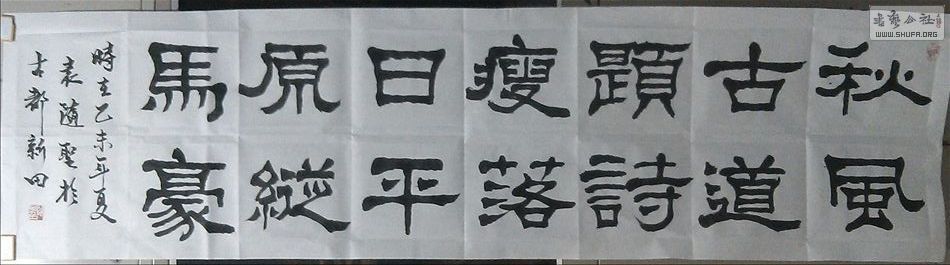 秋風
古道
題詩
瘦落
日平
原縱
馬豪
時在乙未年夏
袁隨聖於
古都新田
書藝公社
WWW.SHUFA.ORG